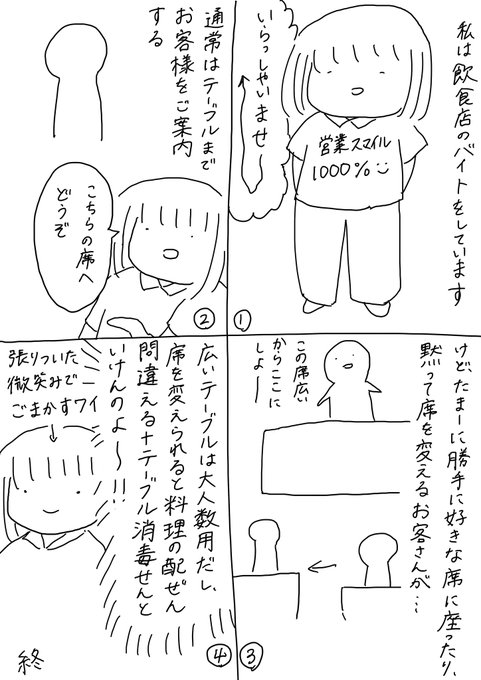 私は飲食店のバイトをしています
いらっしゃいませ〜
営業スマイル
1000%
①
通常はテーブルまで
お客様をご案内
する
こちらの席へ
どうぞ
②
けど、たまーに勝手に好きな席に座ったり、
黙って席を変えるお客さんが…
この席広い
からここに
しよー
③
広いテーブルは大人数用だし、
席を変えられると料理の配ぜん
間違える+テーブル消毒せんと
いけんのよ〜!!
張りついた
微笑みで
ごまかすワイ
④
終